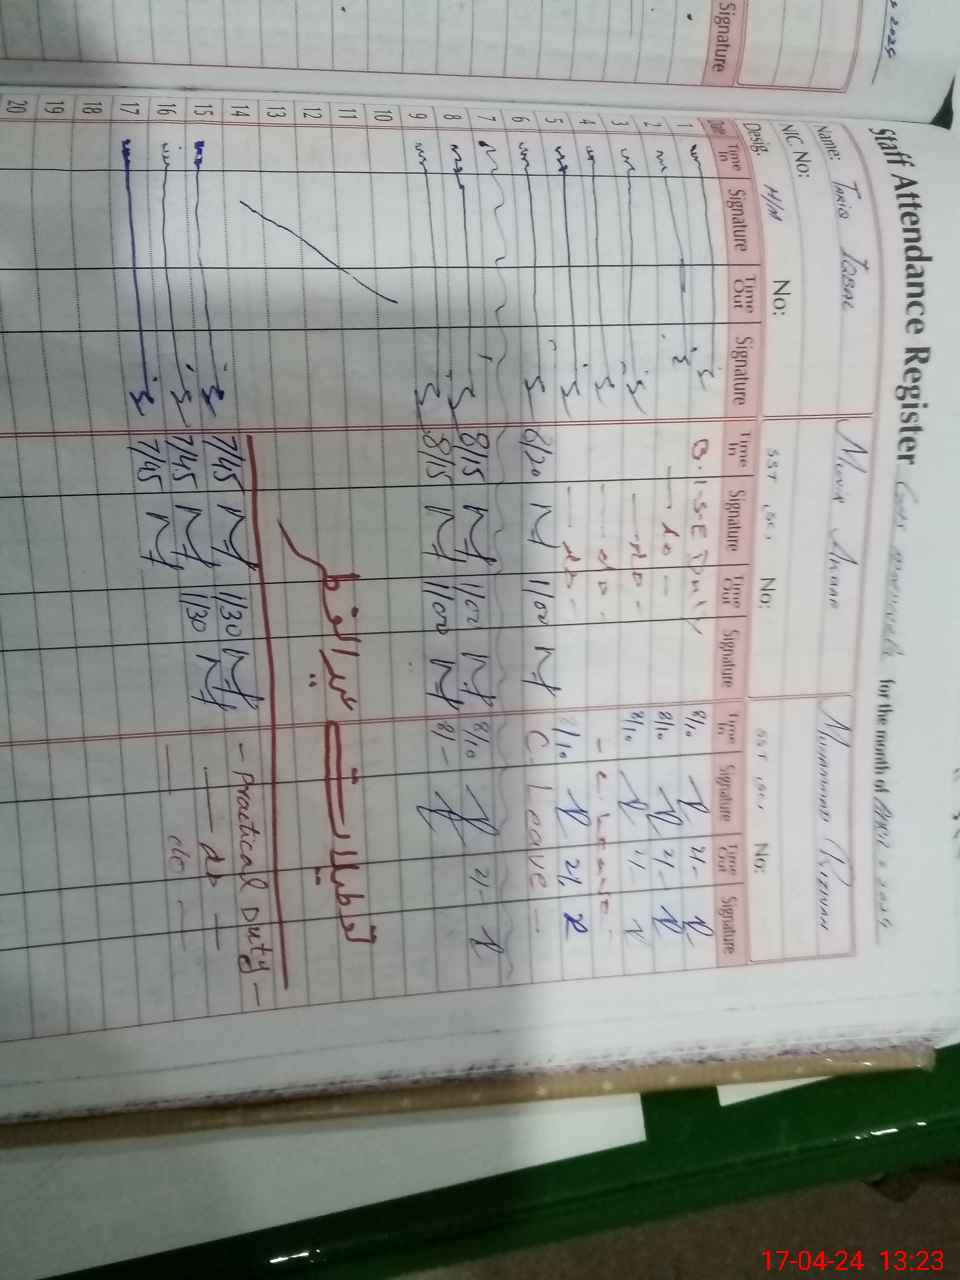 2024
Signature
Staff Attendance Register
for the month of April 2024
Name: Tariq Iqbal
NIC No:
Desig: H/M No:
SST (Sc) No:
Muhammad Rizwan
SST (Sc) No:
Date Time In Signature Time Out Signature Time In Signature Time Out Signature Time In Signature Time Out Signature
1 B.I.S.E Duty 8/10 2/-
2 — do — 8/10 2/-
3 — do — 8/10 2/-
4 — do — - C Leave -
5 — do — 8/10 2/-
6 8/20 1/00 C. Leave —
7 8/15 1/00 8/10 2/-
8 8/15 1/00 8/-
9
10
11
12 تعطیلات عیدالفطر
13
14 7/45 1/30 - Practical Duty -
15 7/45 1/30 — do —
16 7/45 — do —
17
18
19
20
17-04-24 13:23